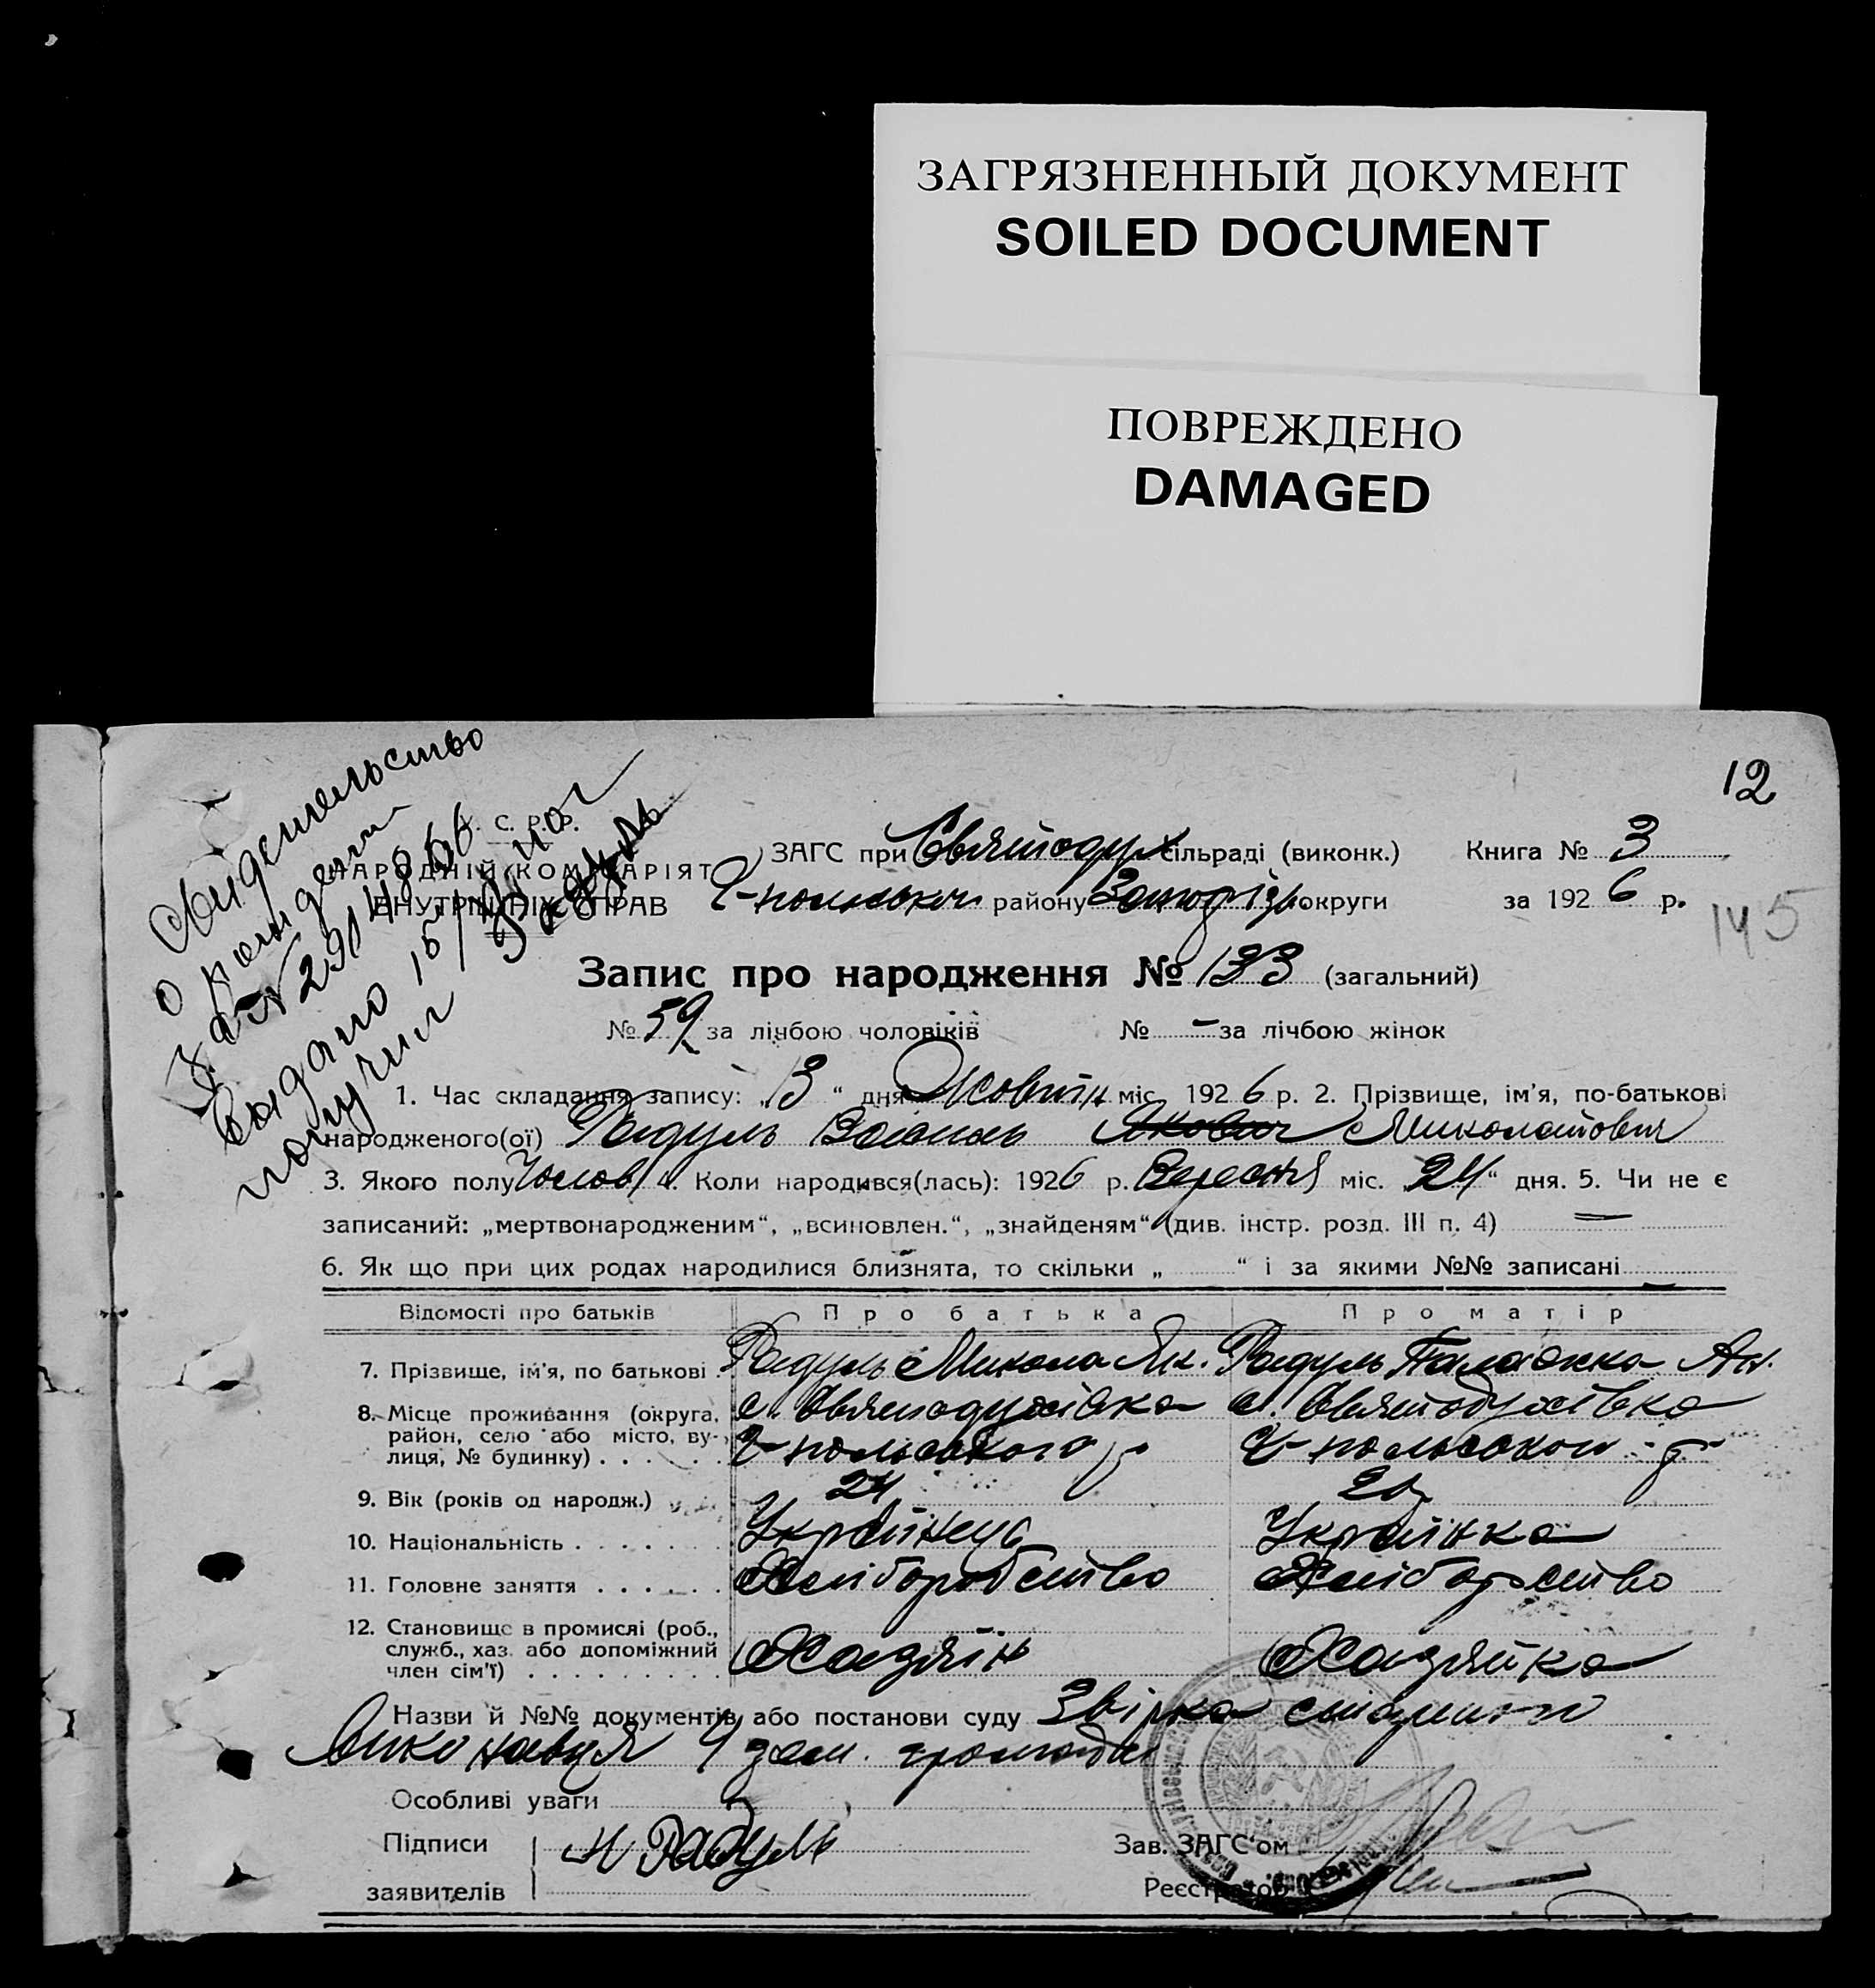 ЗАГРЯЗНЕННЫЙ ДОКУМЕНТ
SOILED DOCUMENT
ПОВРЕЖДЕНО
DAMAGED
12
Свидетельство
о рождении
Выдано 15/
получил Радуль
С. Р. Р.
НАРОДНІЙ КОМІСАРІЯТ
ВНУТРІШНІХ СПРАВ
ЗАГС при Святодух сільраді (виконк.) Книга № 3
району Запоріз. округи за 1926 р.
145
Запис про народження № 133 (загальний)
№ 59 за лічбою чоловіків № – за лічбою жінок
1. Час складання запису: „ 3 “ дня Жовтн міс. 1926 р. 2. Прізвище, ім'я, по-батькові
народженого(ої) Радуль Василь Якович Миколайович
3. Якого полу Чолов 4. Коли народився(лась): 1926 р. Вересня міс. „24“ дня. 5. Чи не є
записаний: „мертвонародженим“, „всиновлен.“, „знайденям“ (див. інстр. розд. III п. 4) —
6. Як що при цих родах народилися близнята, то скільки „ “ і за якими №№ записані —
Відомості про батьків Про батька Про матір
7. Прізвище, ім'я, по батькові . Радуль Микола Як. Радуль Палажка Ан.
8. Місце проживання (округа, с. Святодухівка с. Святодухівка
район, село або місто, ву-
лиця, № будинку) . . . . . Ч-польського р
9. Вік (років од народж.) 24
10. Національність . . . . . . . Українець Українка
11. Головне заняття . . . . . . Хліборобство Хліборобство
12. Становище в промислі (роб.,
служб., хаз. або допоміжний
член сім'ї) . . . . . . . . . Хазяїн Хазяйка
Назви й №№ документів або постанови суду Звірка
Виконавця 4 зем. громади
Особливі уваги
Підписи Н Радуль Зав. ЗАГС'ом
заявителів Реєстратор